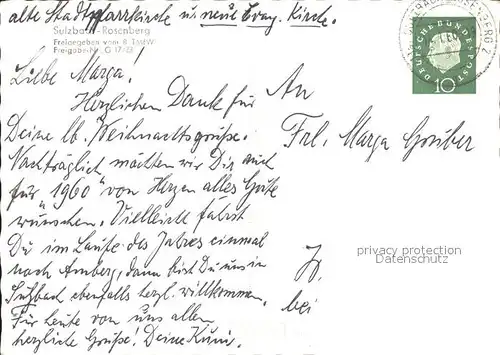 alte Stadtpfarrkirche u. neue Evang. Kirche.
Sulzbach-Rosenberg
Freigegeben vom
Freigabe-Nr. G
DEUTSCHE BUNDESPOST
10
Liebe Marga!
Herzlichen Dank für
Deine lb. Weihnachtsgrüße.
Nachträglich möchten wir Dir auch
für "1960" von Herzen alles Gute
wünschen. Vielleicht fährst
Du im Laufe des Jahres einmal
nach Amberg, dann bist Du uns in
Sulzbach ebenfalls herzl. willkommen.
Für heute von uns allen
herzliche Grüße! Deine Kuni.
An
Frl. Marga Gruber
bei
privacy protection
Datenschutz